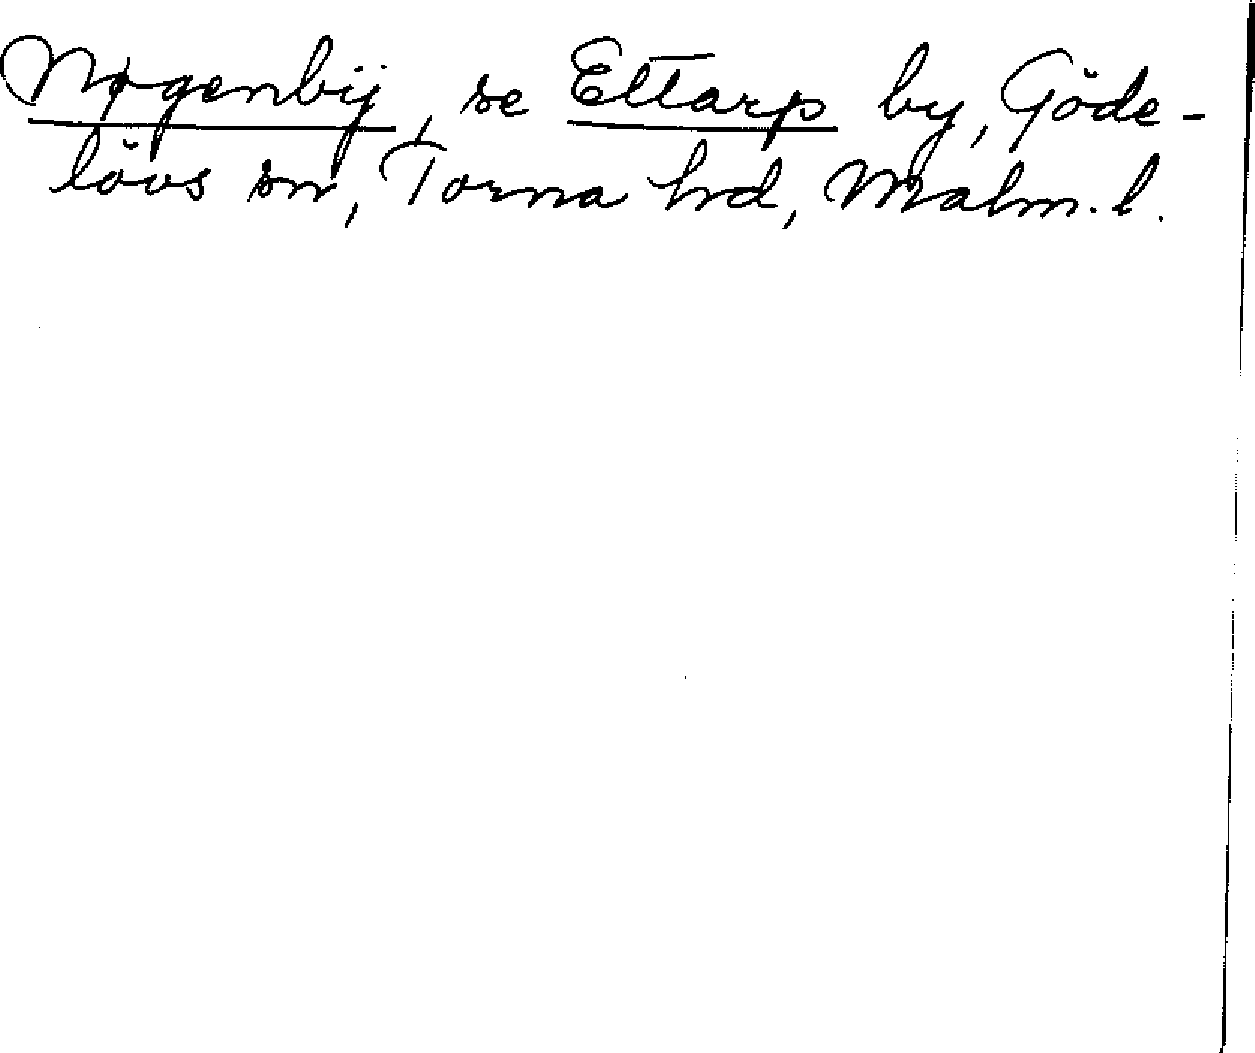 Nøgenbÿ, se Ettarp by, Göde-
lövs sn, Torna hd, Malm. l.